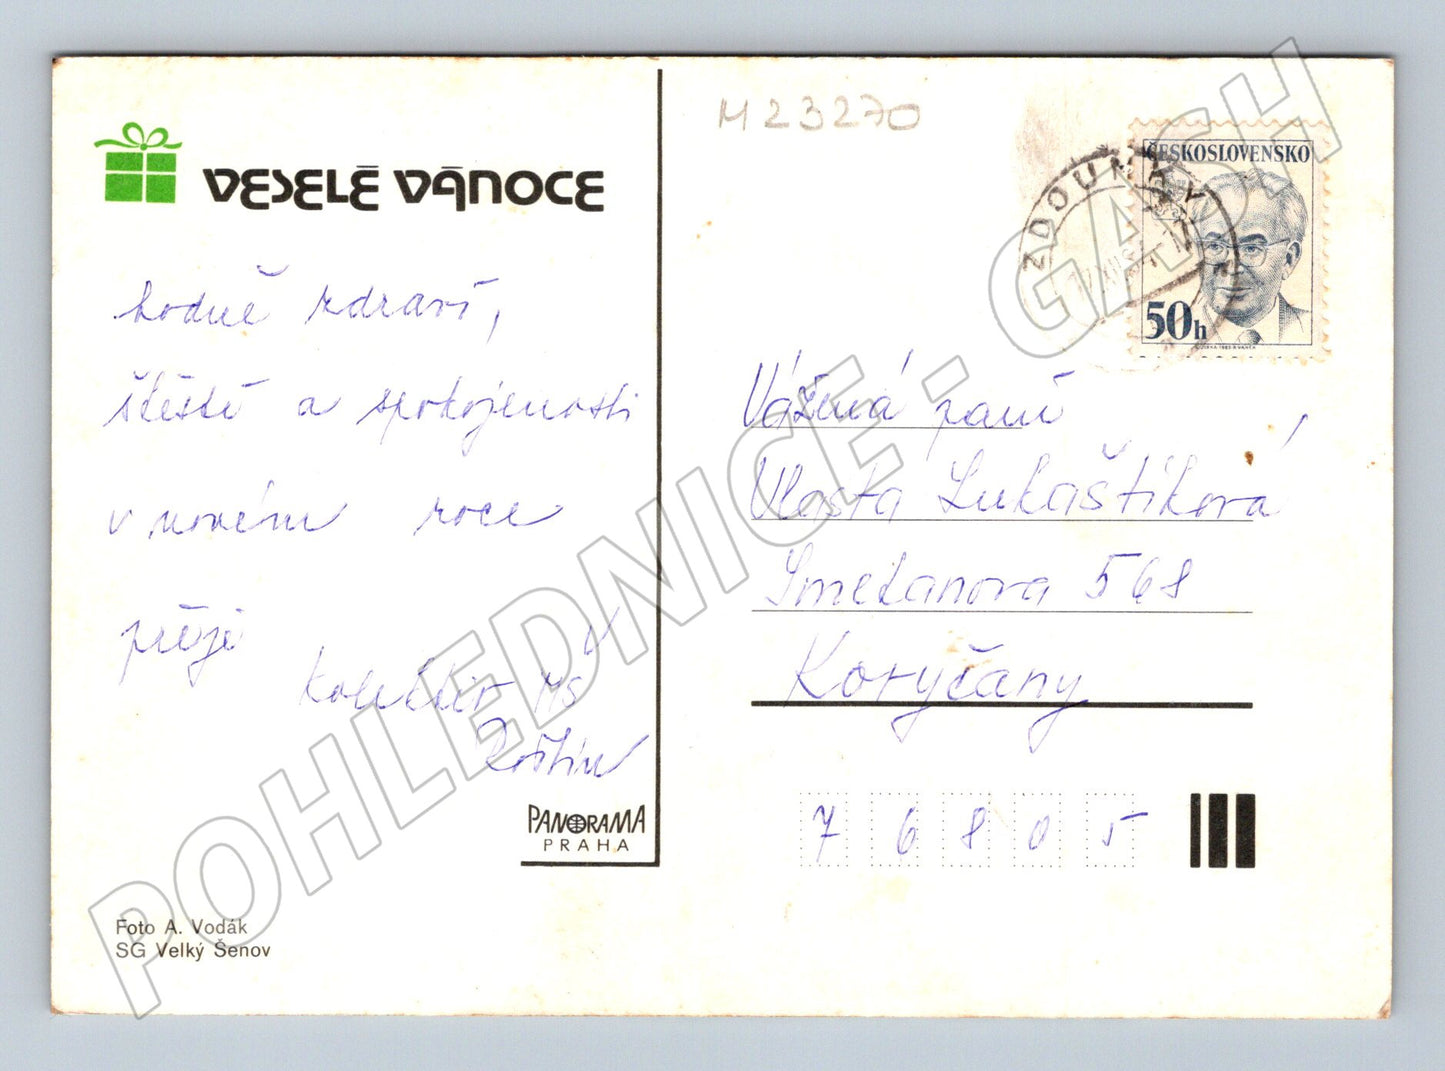 VESELÉ VÁNOCE
hodně zdraví,
štěstí a spokojenosti
v novém roce
přeje
kolektiv MŠ
Roštín
PANORAMA
PRAHA
Foto A. Vodák
SG Velký Šenov
M 23270
ZDOUNKY
ČESKOSLOVENSKO
50h
Vážená paní
Vlasta Lukaštíková
Smetanova 568
Koryčany
7 6 8 0 5
POHLEDNICE - GASH